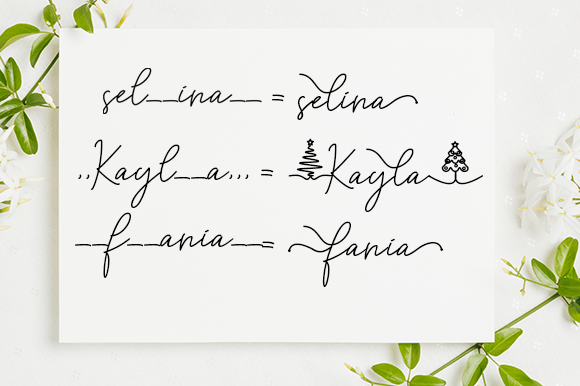 sel__ina__ = selina
,,Kayl__a,,, = Kayla
__f__ania__= fania